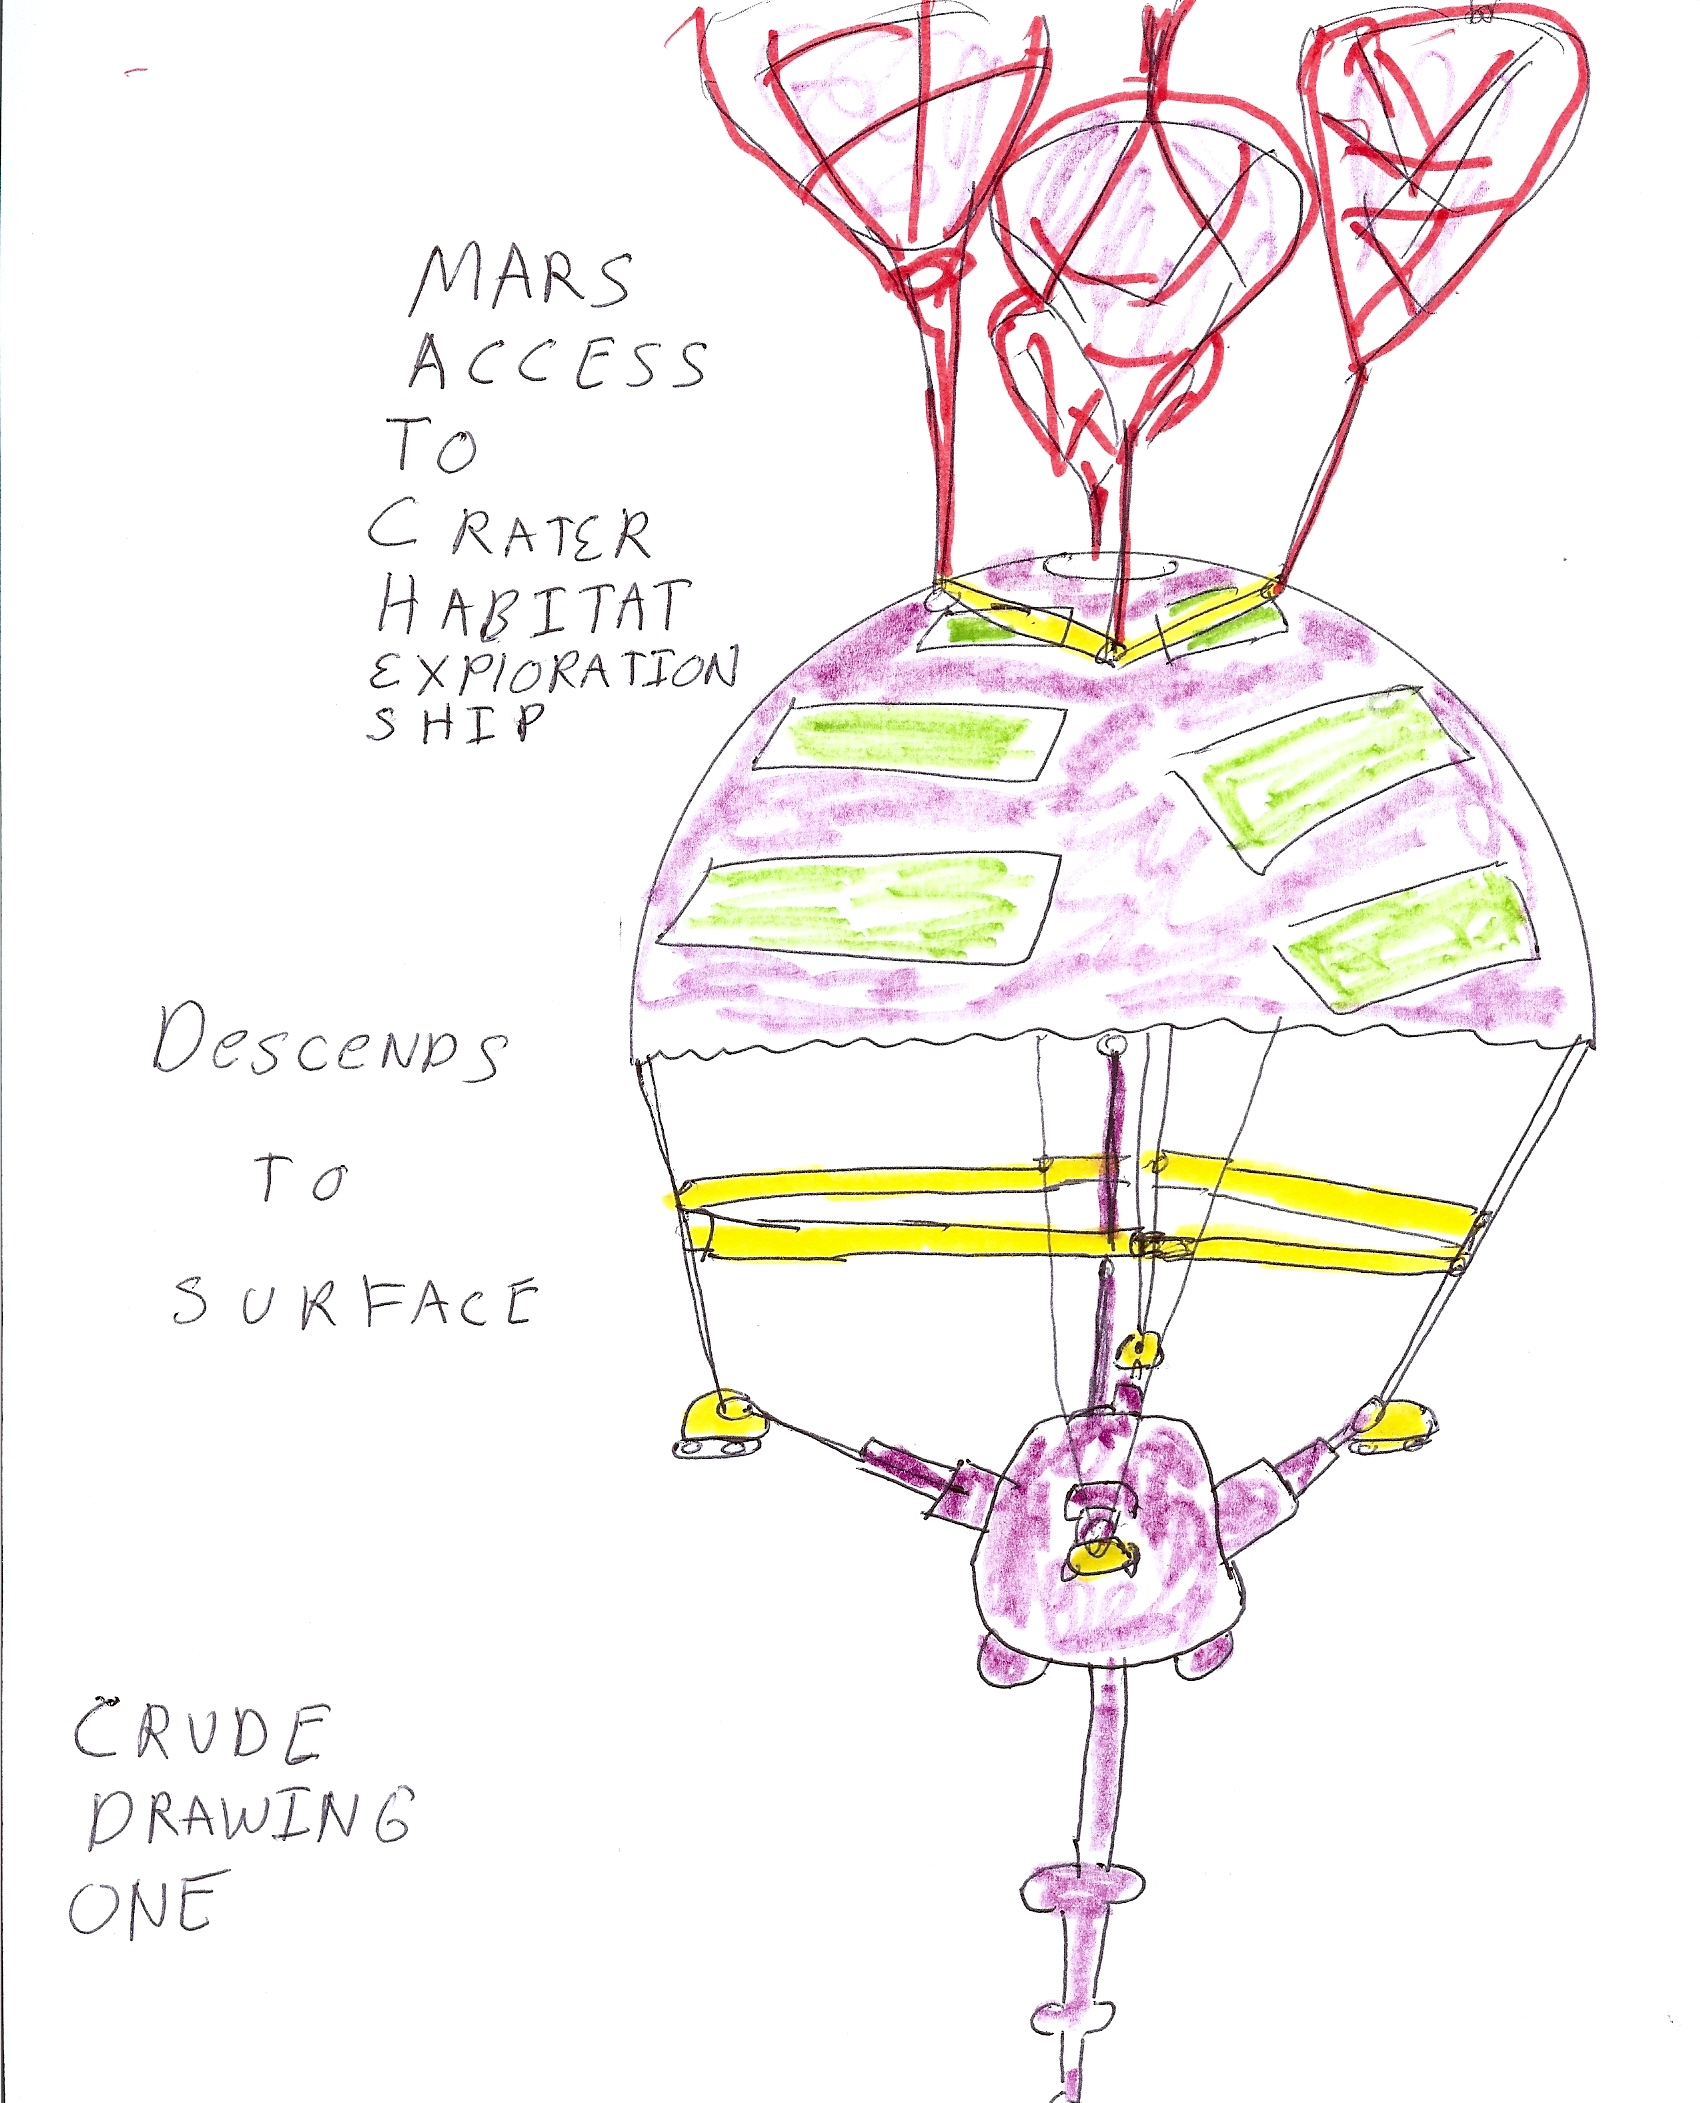 MARS
ACCESS
TO
CRATER
HABITAT
EXPLORATION
SHIP
DESCENDS
TO
SURFACE
CRUDE
DRAWING
ONE